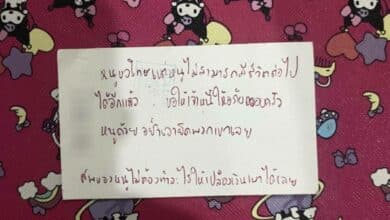 หนูขอโทษแต่หนูไม่สามารถมีชีวิตต่อไป
ได้อีกแล้ว ขอให้เจ้าหนี้ให้อภัยครอบครัว
หนูด้วย อย่าเอาผิดพวกเขาเลย
ศพของหนูไม่ต้องทำอะไรให้เปลืองเงินเผาได้เลย